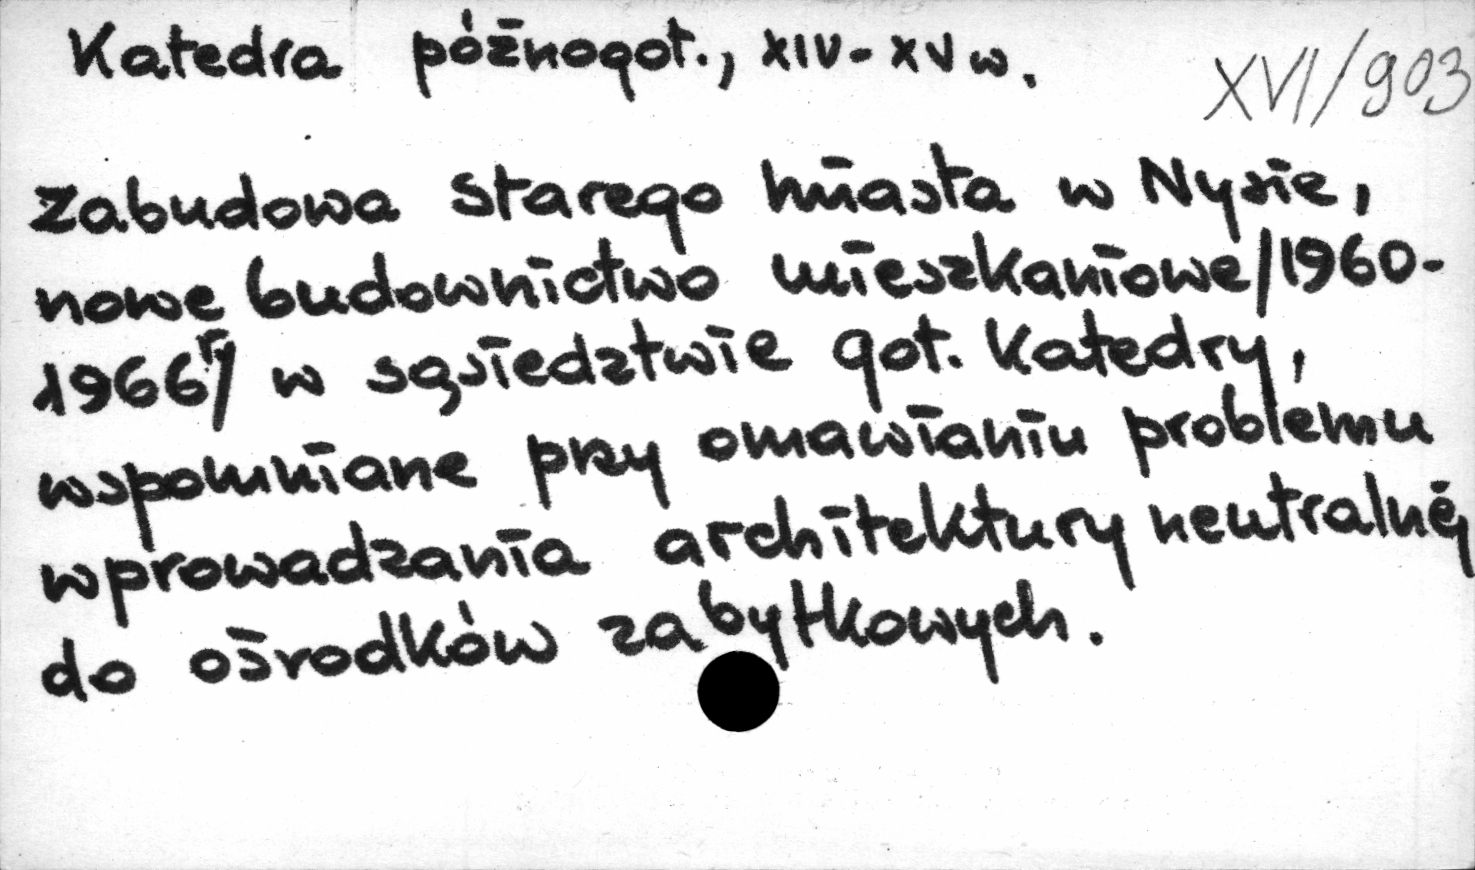 Katedra późnogot., XIV-XV w.
XVI/903
Zabudowa Starego miasta w Nysie,
nowe budownictwo mieszkaniowe/1960-
1966r/ w sąsiedztwie got. Katedry,
wspomniane przy omawianiu problemu
wprowadzania architektury neutralnej
do ośrodków zabytkowych.